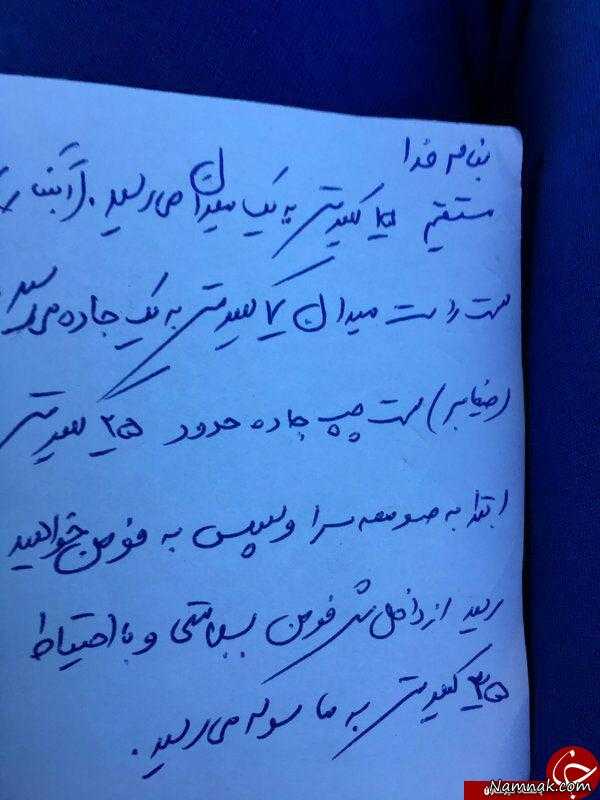 بنام خدا
مستقیم کیلومتر به یک میدان می رسید .
سمت راست میدان ۷ کیلومتر به یک جاده می رسید
(ضیابر) سمت چپ جاده حدود ۲۵ کیلومتر
ابتدا به صومعه سرا و سپس به فومن خواهید
رسید از داخل شهر فومن بسلامتی و با احتیاط
۳۵ کیلومتر به ماسوله می رسید .
Namnak.com